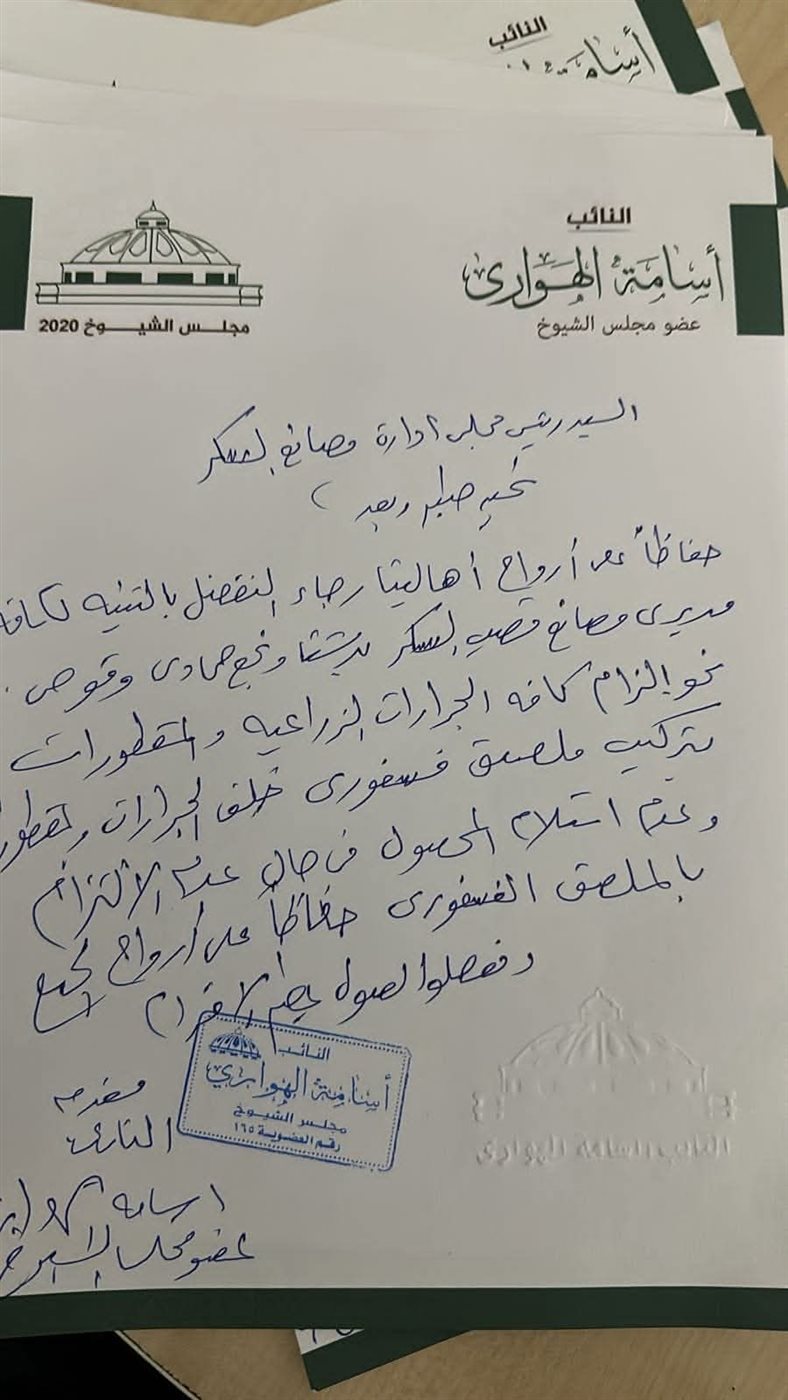 النائب
أسامة
النائب
أسامة الهوارى
عضو مجلس الشيوخ
مجلس الشيوخ 2020
السيد رئيس مجلس ادارة مصانع السكر
تحيه طيبه وبعد
حفاظاً على أرواح أهالينا رجاء التفضل بالتنبيه لكافه
مديرى مصانع قصب السكر بدشنا ونجع حمادى وقوص
نحو إلزام كافه الجرارات الزراعيه والمقطورات
بتركيب ملصق فسفورى خلف الجرارات و
وعدم استلام المحصول فى حال عدم الالتزام
بالملصق الفسفورى حفاظاً على أرواح الجميع
وتفضلوا بقبول الاحترام
النائب
أسامة الهوارى
مجلس الشيوخ
رقم العضوية ١٦٥
مقدمه
النائب
اسامه
عضو مجلس الشيوخ
النائب اسامة الهوارى